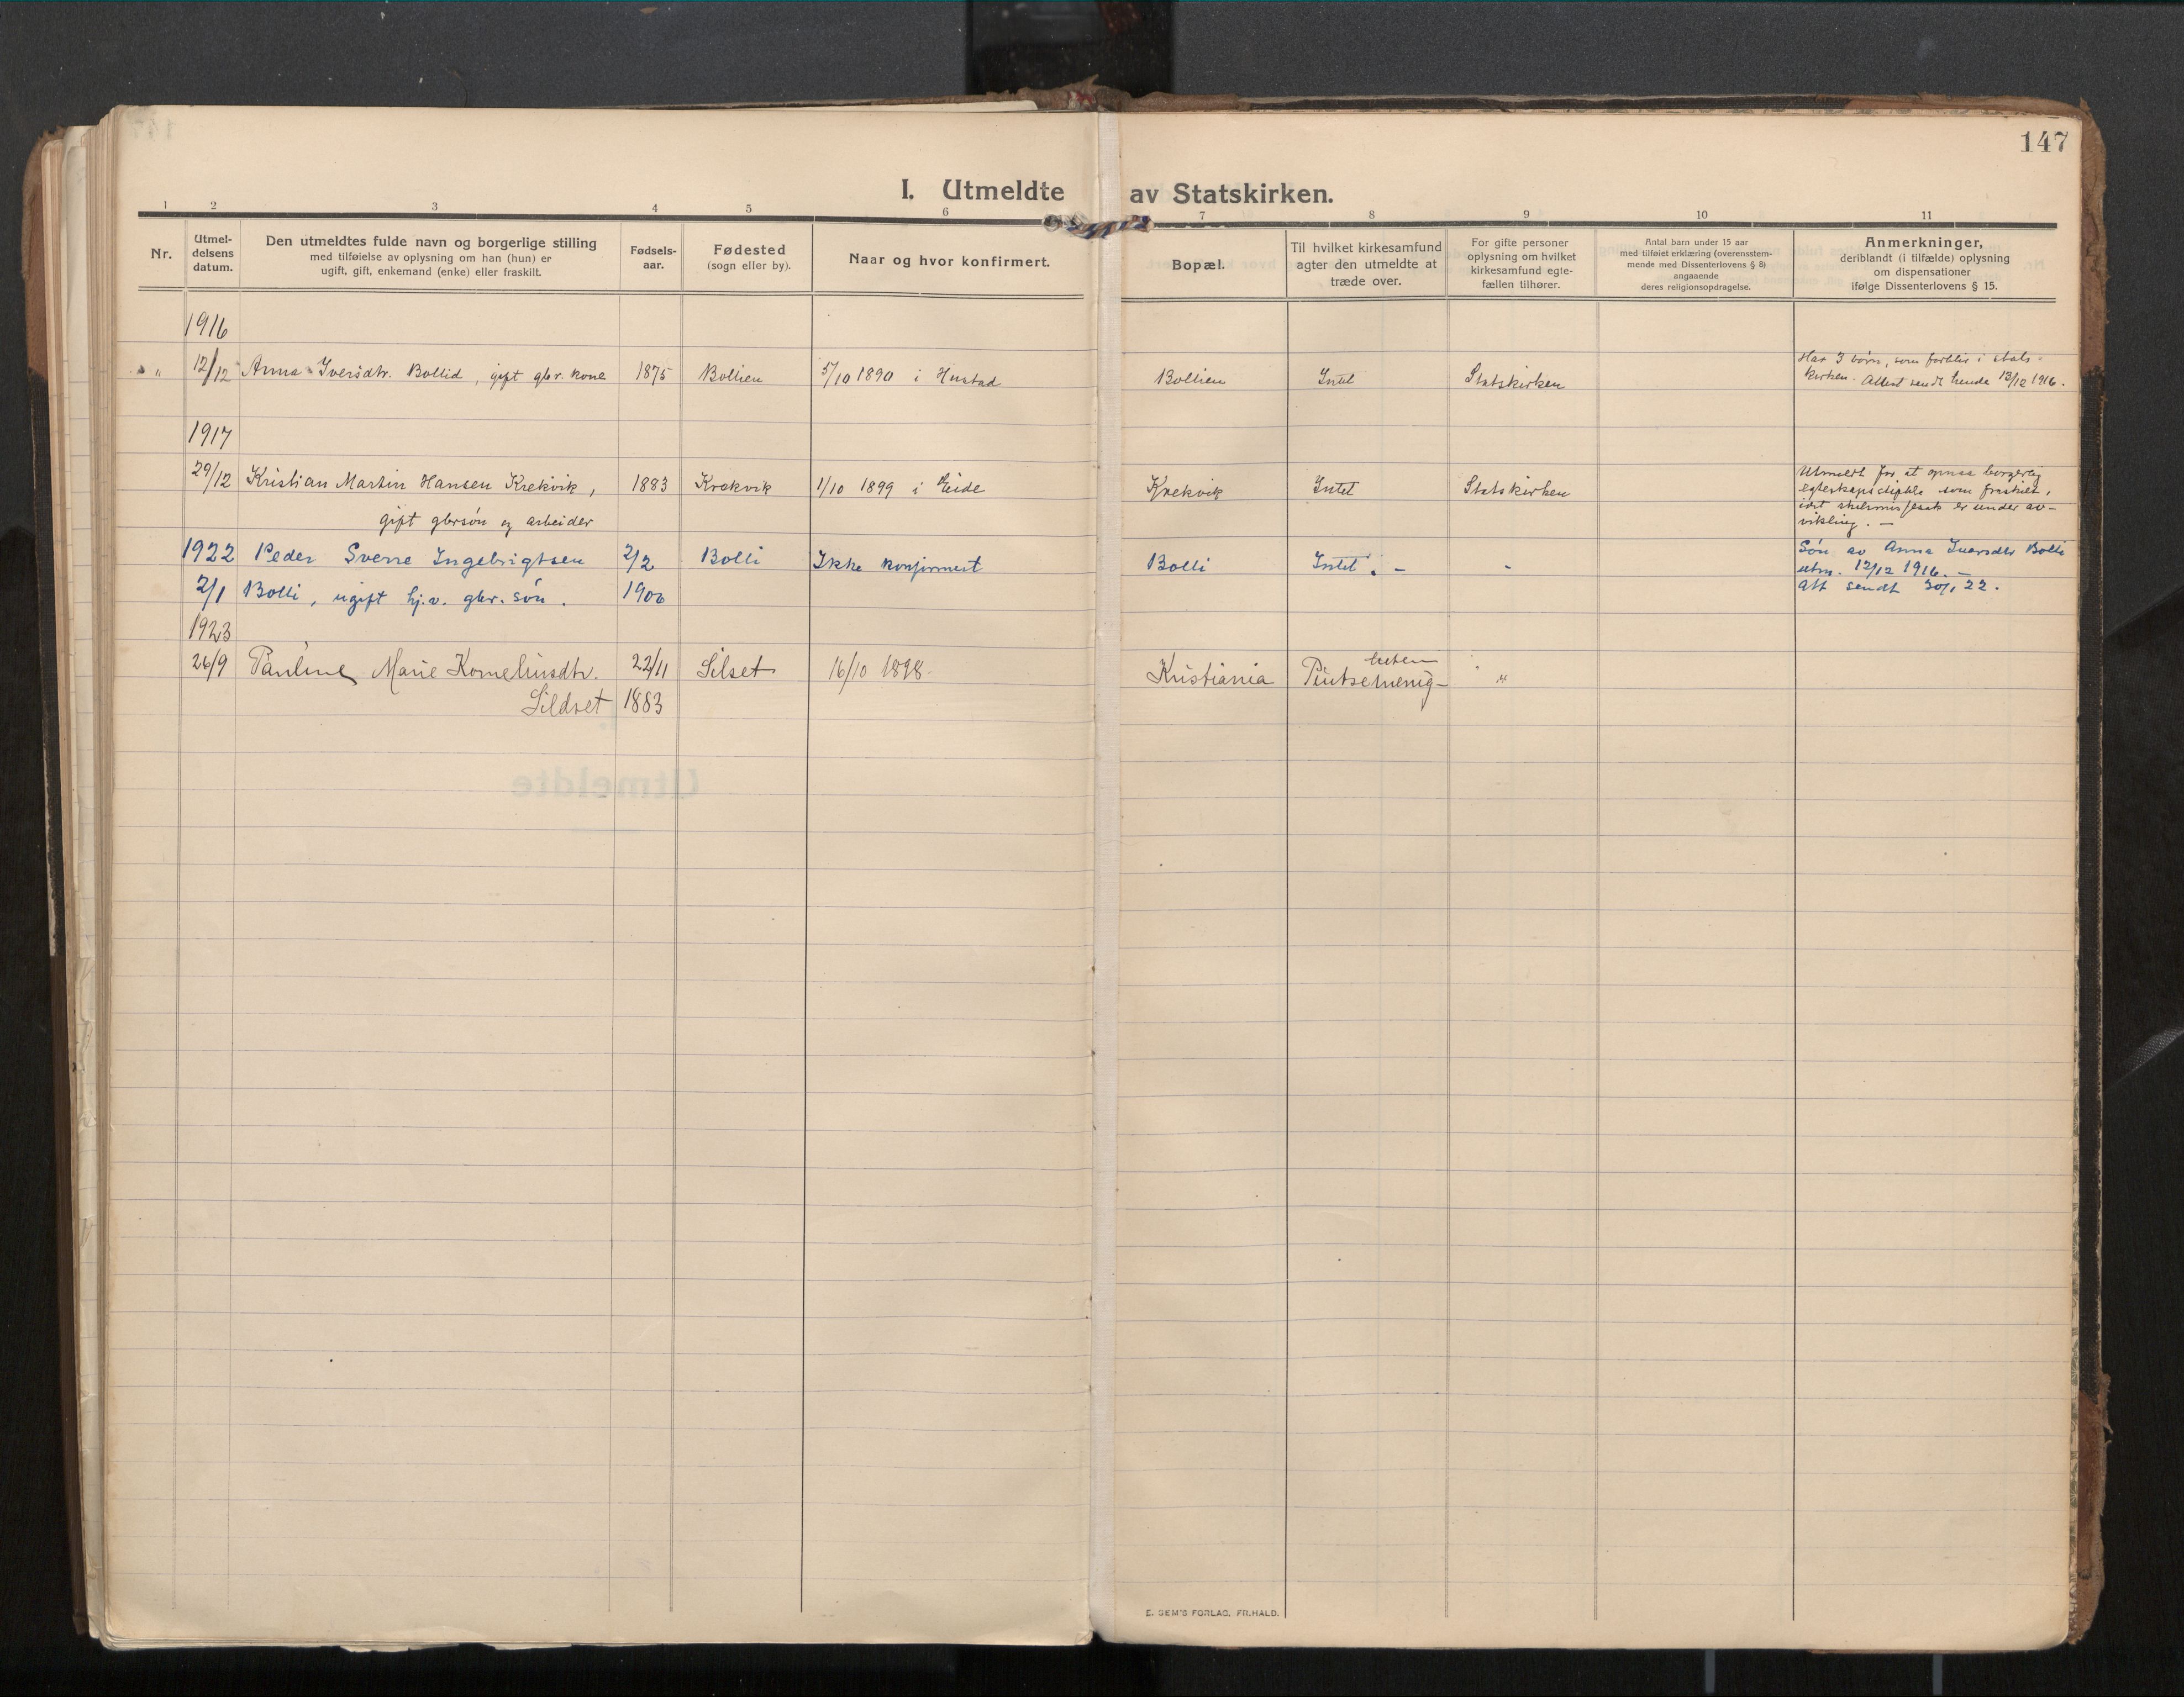 147
I. Utmeldte av Statskirken.
1 2 3 4 5 6 7 8 9 10 11
Nr.
Utmel-
delsens
datum.
Den utmeldtes fulde navn og borgerlige stilling
med tilføielse av oplysning om han (hun) er
ugift, gift, enkemand (enke) eller fraskilt.
Fødsels-
aar.
Fødested
(sogn eller by).
Naar og hvor konfirmert.
Bopæl.
Til hvilket kirkesamfund
agter den utmeldte at
træde over.
For gifte personer
oplysning om hvilket
kirkesamfund egte-
fællen tilhører.
Antal barn under 15 aar
med tilføiet erklæring (overensstem-
mende med Dissenterlovens § 8)
angaaende
deres religionsopdragelse.
Anmerkninger,
deriblandt (i tilfælde) oplysning
om dispensationer
ifølge Dissenterlovens § 15.
1916
" 12/12 Anna Iversdtr. Bollid, gift gbr. kone 1875 Bollien 5/10 1890 i Hustad Bollien Intet Statskirken
Har 3 børn, som forblir i stats-
kirken. Attest sendt hende 13/12 1916.
1917
29/12 Kristian Martin Hansen Krekvik, 1883 Krekvik 1/10 1899 i Eide Krekvik Intet Statskirken
gift gbrsøn og arbeider
Utmeldt for at opnaa borgerlig
egteskaps som fraskilt,
idet skilsmissesak er under av-
vikling. —
1922 Peder Sverre Ingebrigtsen 2/2 Bolli Ikke konfirmert Bolli Intet. – -
2/1 Bolli, ugift hj.v. gbr. søn. 1906
Søn av Anna Iversdtr Bolli
utm. 12/12 1916. —
Att sendt 30/1 22.
1923
26/9 Pauline Marie Korneliusdtr. 22/11 Silset 16/10 1898. Kristiania Pintsemenig- "
heten
Sildset 1883
E. SEM'S FORLAG, FR.HALD.